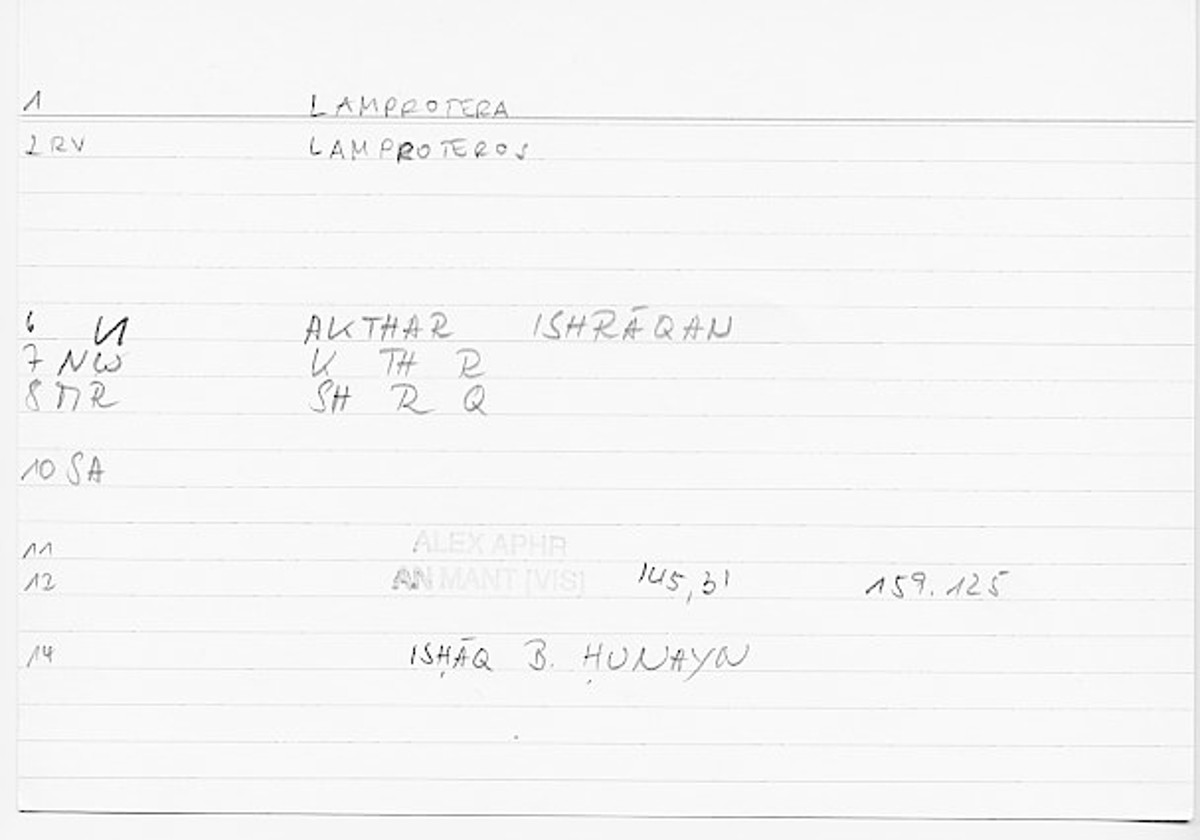 1 LAMPROTERA
2 RV LAMPROTEROS
6 N AKTHAR ISHRĀQAN
7 NW K TH R
8 MR SH R Q
10 SA
11 ALEX APHR
12 AN MANT [VIS] 145,31 159.125
14 ISḤĀQ B. ḤUNAYN